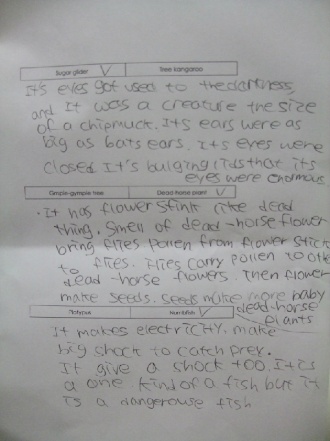 Sugar glider ✓ Tree kangaroo
It's eyes got used to the darkness,
and It was a creature the size
of a chipmuck. Its ears were as
big as bats ears. Its eyes were
closed It's bulging lids that its
eyes were enormous
Gimpie-gympie tree Dead horse plant ✓
. It has flower stink like dead
thing. Smell of dead-horse flower
bring flies Pollen from flower stick
to flies. Flies carry pollen to othe
dead-horse flowers. Then flower
make seeds. Seeds make more baby
dead-horse
plants
Platypus Numbfish ✓
It makes electricity. make
big shock to catch prey.
It give a shock too. It is
a one kind of a fish but it
is a dangerouse fish